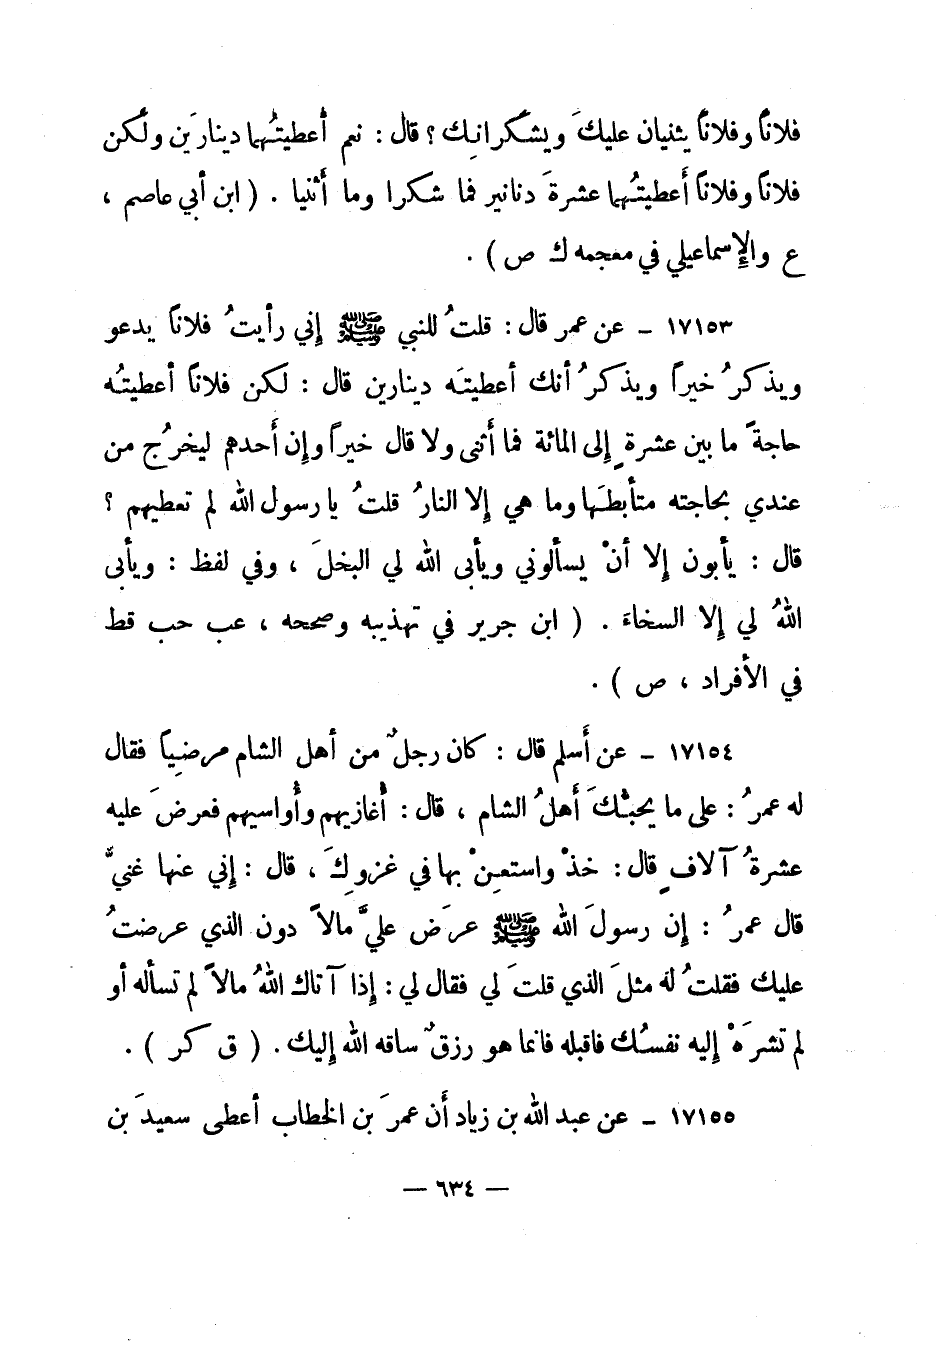 فلاناً وفلاناً يثنيان عليكَ ويشكرانِك ؟ قال : نعم أعطيتُهما دينارَين ولكن
فلاناً وفلاناً أَعطيتُهما عشرةَ دنانير فما شكرا وما أَثنيا . ( ابن أبي عاصم ،
ع والإسماعيلي في معجمه ك ص ) .
١٧١٥٣ ـ عن عمر قال : قلتُ للنبي ﷺ إني رأيتُ فلاناً يدعو
ويذكرُ خيراً ويذكرُ أنك أعطيتَه دينارين قال : لكن فلاناً أعطيتُه
حاجةً ما بين عشرةٍ إلى المائة فما أثنى ولا قال خيراً وإن أَحدهم ليخرُج من
عندي بحاجته متأبطَها وما هي إلا النارُ قلتُ يا رسول الله لم تعطيهم ؟
قال : يأبون إلا أنْ يسألوني ويأبى الله لي البخلَ ، وفي لفظ : ويأبى
اللهُ لي إلا السخاءَ . ( ابن جرير في تهذيبه وصححه ، عب حب قط
في الأفراد ، ص ) .
١٧١٥٤ ـ عن أَسلم قال : كان رجلٌ من أهل الشام مرضياً فقال
له عمرُ : على ما يحبُّكَ أَهلُ الشام ، قال : أُغازيهم وأُواسيهم فعرضَ عليه
عشرةُ آلافٍ قال : خذْ واستعِنْ بها في غزوِكَ ، قال : إني عنها غنيٌّ
قال عمرُ : إن رسولَ الله ﷺ عرَض عليَّ مالاً دون الذي عرضتُ
عليك فقلتُ له مثلَ الذي قلتَ لي فقال لي : إذا آتاك اللهُ مالاً لم تسأله أو
لم تشرَهْ إليه نفسُك فاقبله فانما هو رزقٌ ساقه الله إليك . ( ق كر ) .
١٧١٥٥ ـ عن عبد الله بن زياد أَن عمرَ بن الخطاب أعطى سعيدَ بن
— ٦٣٤ —